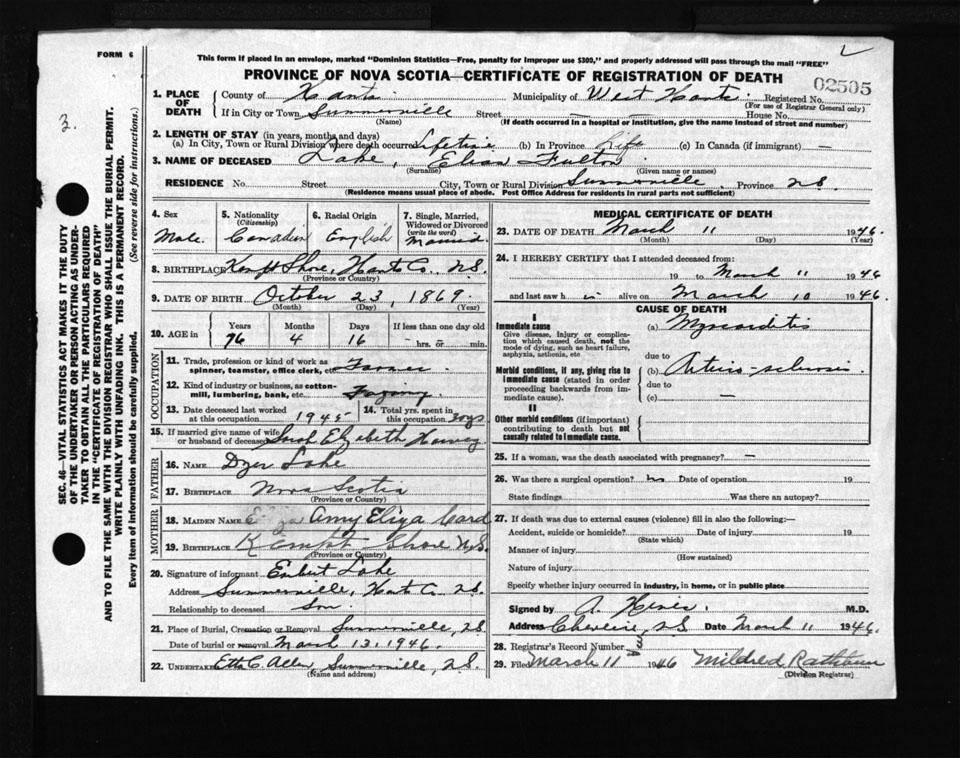 FORM 6
This form if placed in an envelope, marked "Dominion Statistics—Free, penalty for improper use $300," and properly addressed will pass through the mail "FREE"
PROVINCE OF NOVA SCOTIA—CERTIFICATE OF REGISTRATION OF DEATH
02505
3.
SEC. 46—VITAL STATISTICS ACT MAKES IT THE DUTY
OF THE UNDERTAKER OR PERSON ACTING AS UNDER-
TAKER TO OBTAIN ALL THE PARTICULARS REQUIRED
IN THE "CERTIFICATE OF REGISTRATION OF DEATH"
AND TO FILE THE SAME WITH THE DIVISION REGISTRAR WHO SHALL ISSUE THE BURIAL PERMIT.
WRITE PLAINLY WITH UNFADING INK. THIS IS A PERMANENT RECORD.
Every item of information should be carefully supplied. (See reverse side for instructions.)
1. PLACE OF DEATH County of Hants Municipality of West Hants Registered No.
(For use of Registrar General only)
If in City or Town Summerville Street — House No. —
(Name) (If death occurred in a hospital or institution, give the name instead of street and number)
2. LENGTH OF STAY (in years, months and days)
(a) In City, Town or Rural Division where death occurred Lifetime (b) In Province Life (c) In Canada (if immigrant) —
3. NAME OF DECEASED Lake, Elias Fulton
(Surname) (Given name or names)
RESIDENCE No. Street City, Town or Rural Division Summerville Province N.S.
(Residence means usual place of abode. Post Office Address for residents in rural parts not sufficient)
4. Sex Male
5. Nationality (Citizenship) Canadian
6. Racial Origin English
7. Single, Married, Widowed or Divorced (write the word) Married
8. BIRTHPLACE Kempt Shore, Hants Co., N.S.
(Province or Country)
9. DATE OF BIRTH October 23, 1869
(Month) (Day) (Year)
10. AGE in Years 76 Months 4 Days 16 If less than one day old hrs. or min.
OCCUPATION
11. Trade, profession or kind of work as spinner, teamster, office clerk, etc. Farmer
12. Kind of industry or business, as cotton-mill, lumbering, bank, etc. Farming
13. Date deceased last worked at this occupation 1945
14. Total yrs. spent in this occupation
15. If married give name of wife or husband of deceased Sarah Elizabeth Harvey
FATHER
16. NAME Dyer Lake
17. BIRTHPLACE Nova Scotia
(Province or Country)
MOTHER
18. MAIDEN NAME Amy Eliza Card
19. BIRTHPLACE Kempt Shore N.S.
(Province or Country)
20. Signature of informant Lake
Address Summerville, Hants Co. N.S.
Relationship to deceased Son
21. Place of Burial, Cremation or Removal Summerville, N.S.
Date of burial or removal March 13, 1946
22. UNDERTAKER Etta C. Allen, Summerville, N.S.
(Name and address)
MEDICAL CERTIFICATE OF DEATH
23. DATE OF DEATH March 11 1946.
(Month) (Day) (Year)
24. I HEREBY CERTIFY that I attended deceased from:
19 to March 11 1946
and last saw h im alive on March 10 1946.
CAUSE OF DEATH
I
Immediate cause
Give disease, injury or complication which caused death, not the mode of dying, such as heart failure, asphyxia, asthenia, etc
(a) Myocarditis
due to
Morbid conditions, if any, giving rise to immediate cause (stated in order proceeding backwards from immediate cause).
(b) Arterio-sclerosis
due to
(c) —
II
Other morbid conditions (if important) contributing to death but not causally related to immediate cause.
25. If a woman, was the death associated with pregnancy? —
26. Was there a surgical operation? no Date of operation 19
State findings Was there an autopsy?
27. If death was due to external causes (violence) fill in also the following:—
Accident, suicide or homicide? Date of injury 19
(State which)
Manner of injury
(How sustained)
Nature of injury
Specify whether injury occurred in industry, in home, or in public place
Signed by A. Hines. M.D.
Address Cheverie, N.S. Date March 11 1946.
28. Registrar's Record Number
29. Filed March 11 1946 Mildred Rathbun
(Division Registrar)